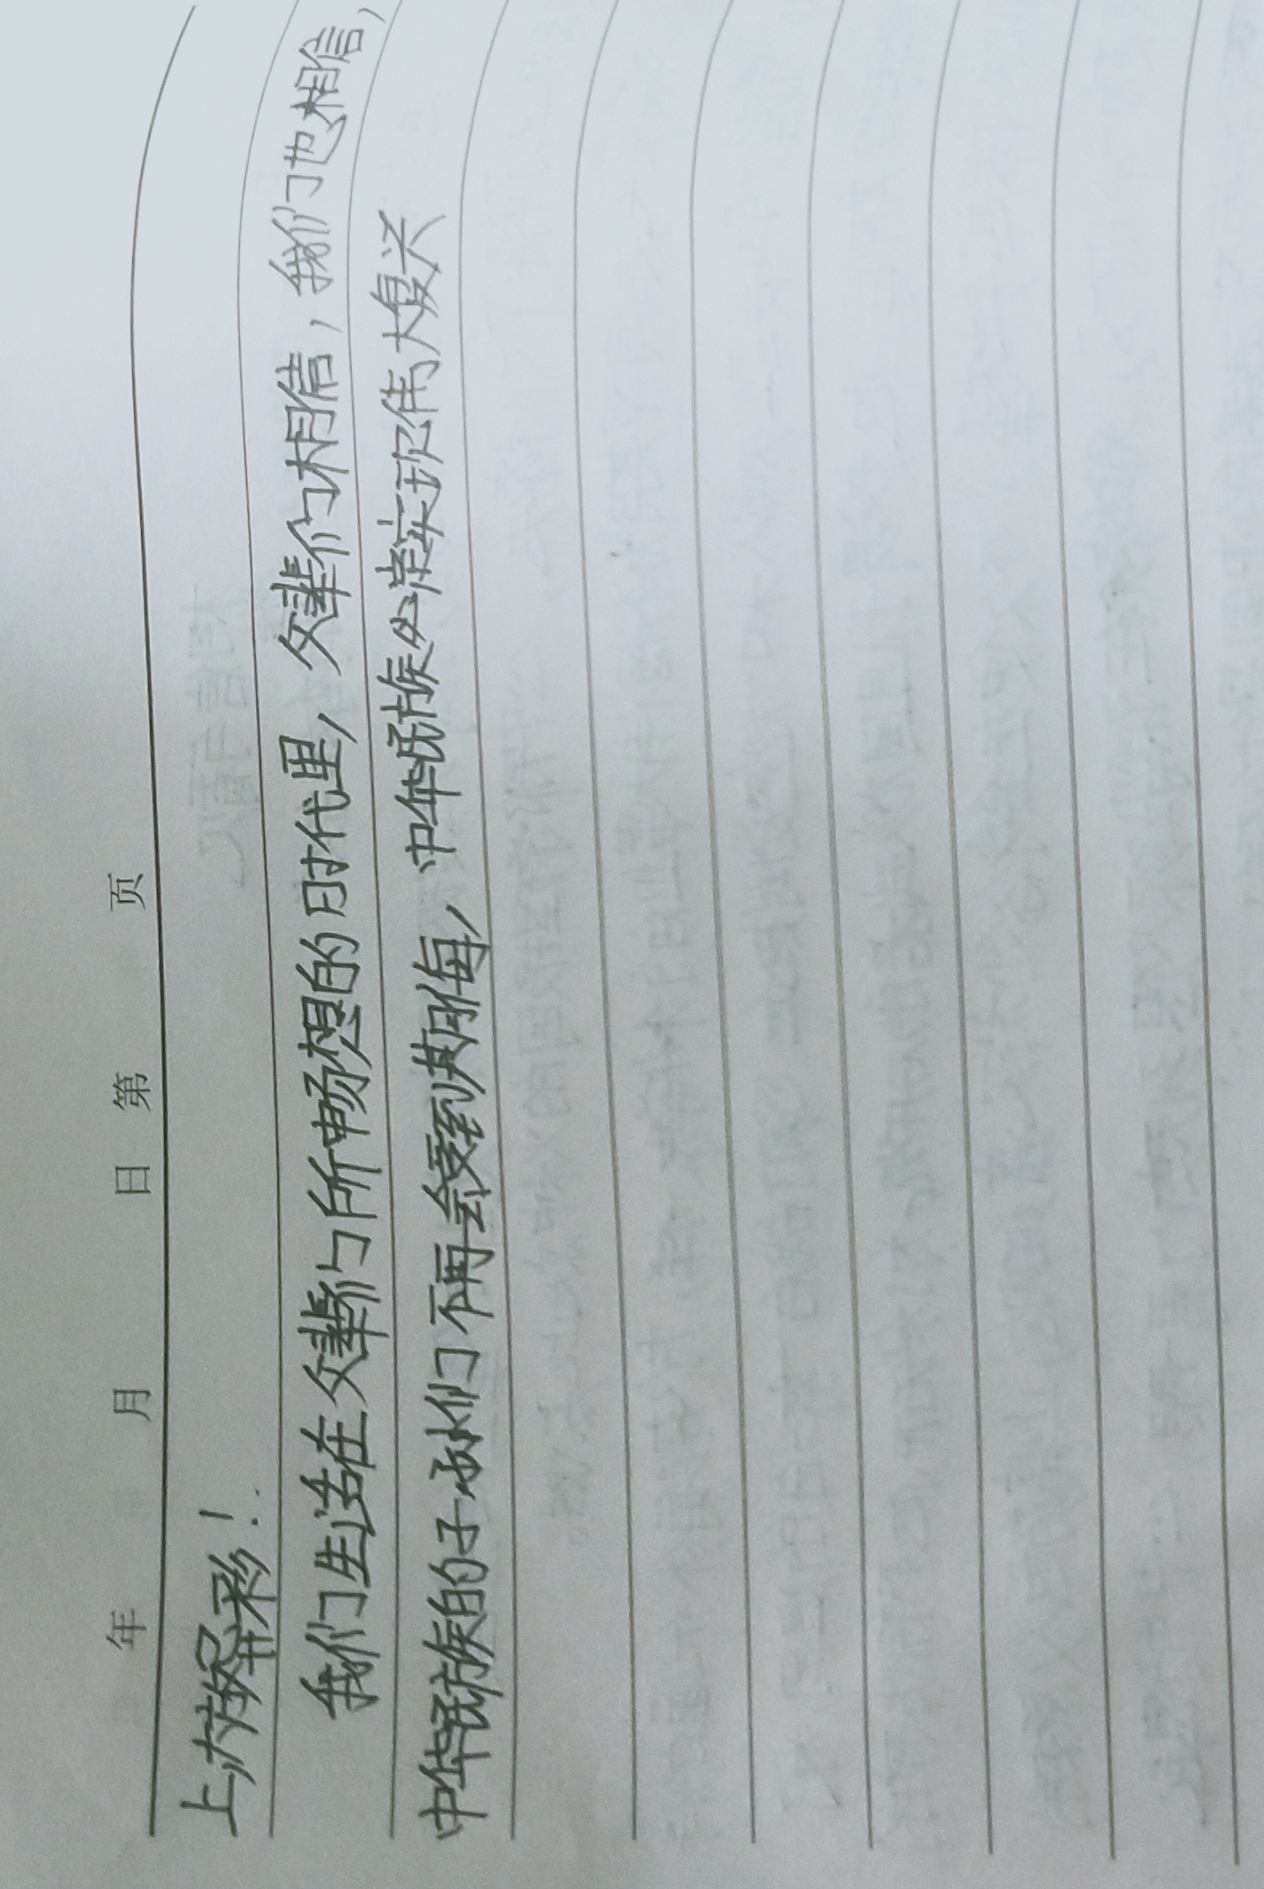 年 月 日 第 页
上大放异彩！
我们生活在父辈们所畅想的时代里，父辈们相信，我们也相信，
中华民族的子孙们不再会受到欺侮，中华民族必定实现伟大复兴